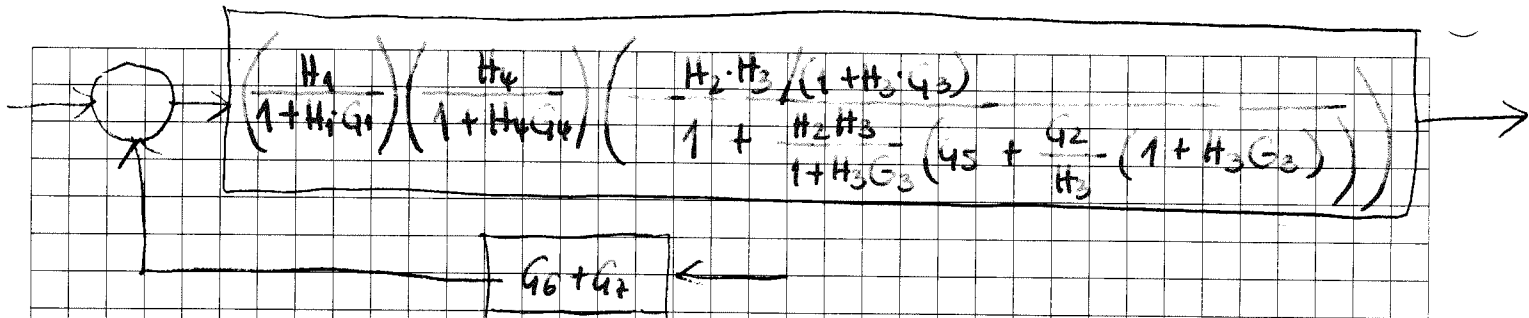 (H1 / (1 + H1·G1)) (H4 / (1 + H4G4)) ( (H2·H3 / (1 + H3·G3)) / (1 + (H2H3 / (1 + H3G3)) (G5 + (G2 / H3) (1 + H3G3))) )
G6 + G7